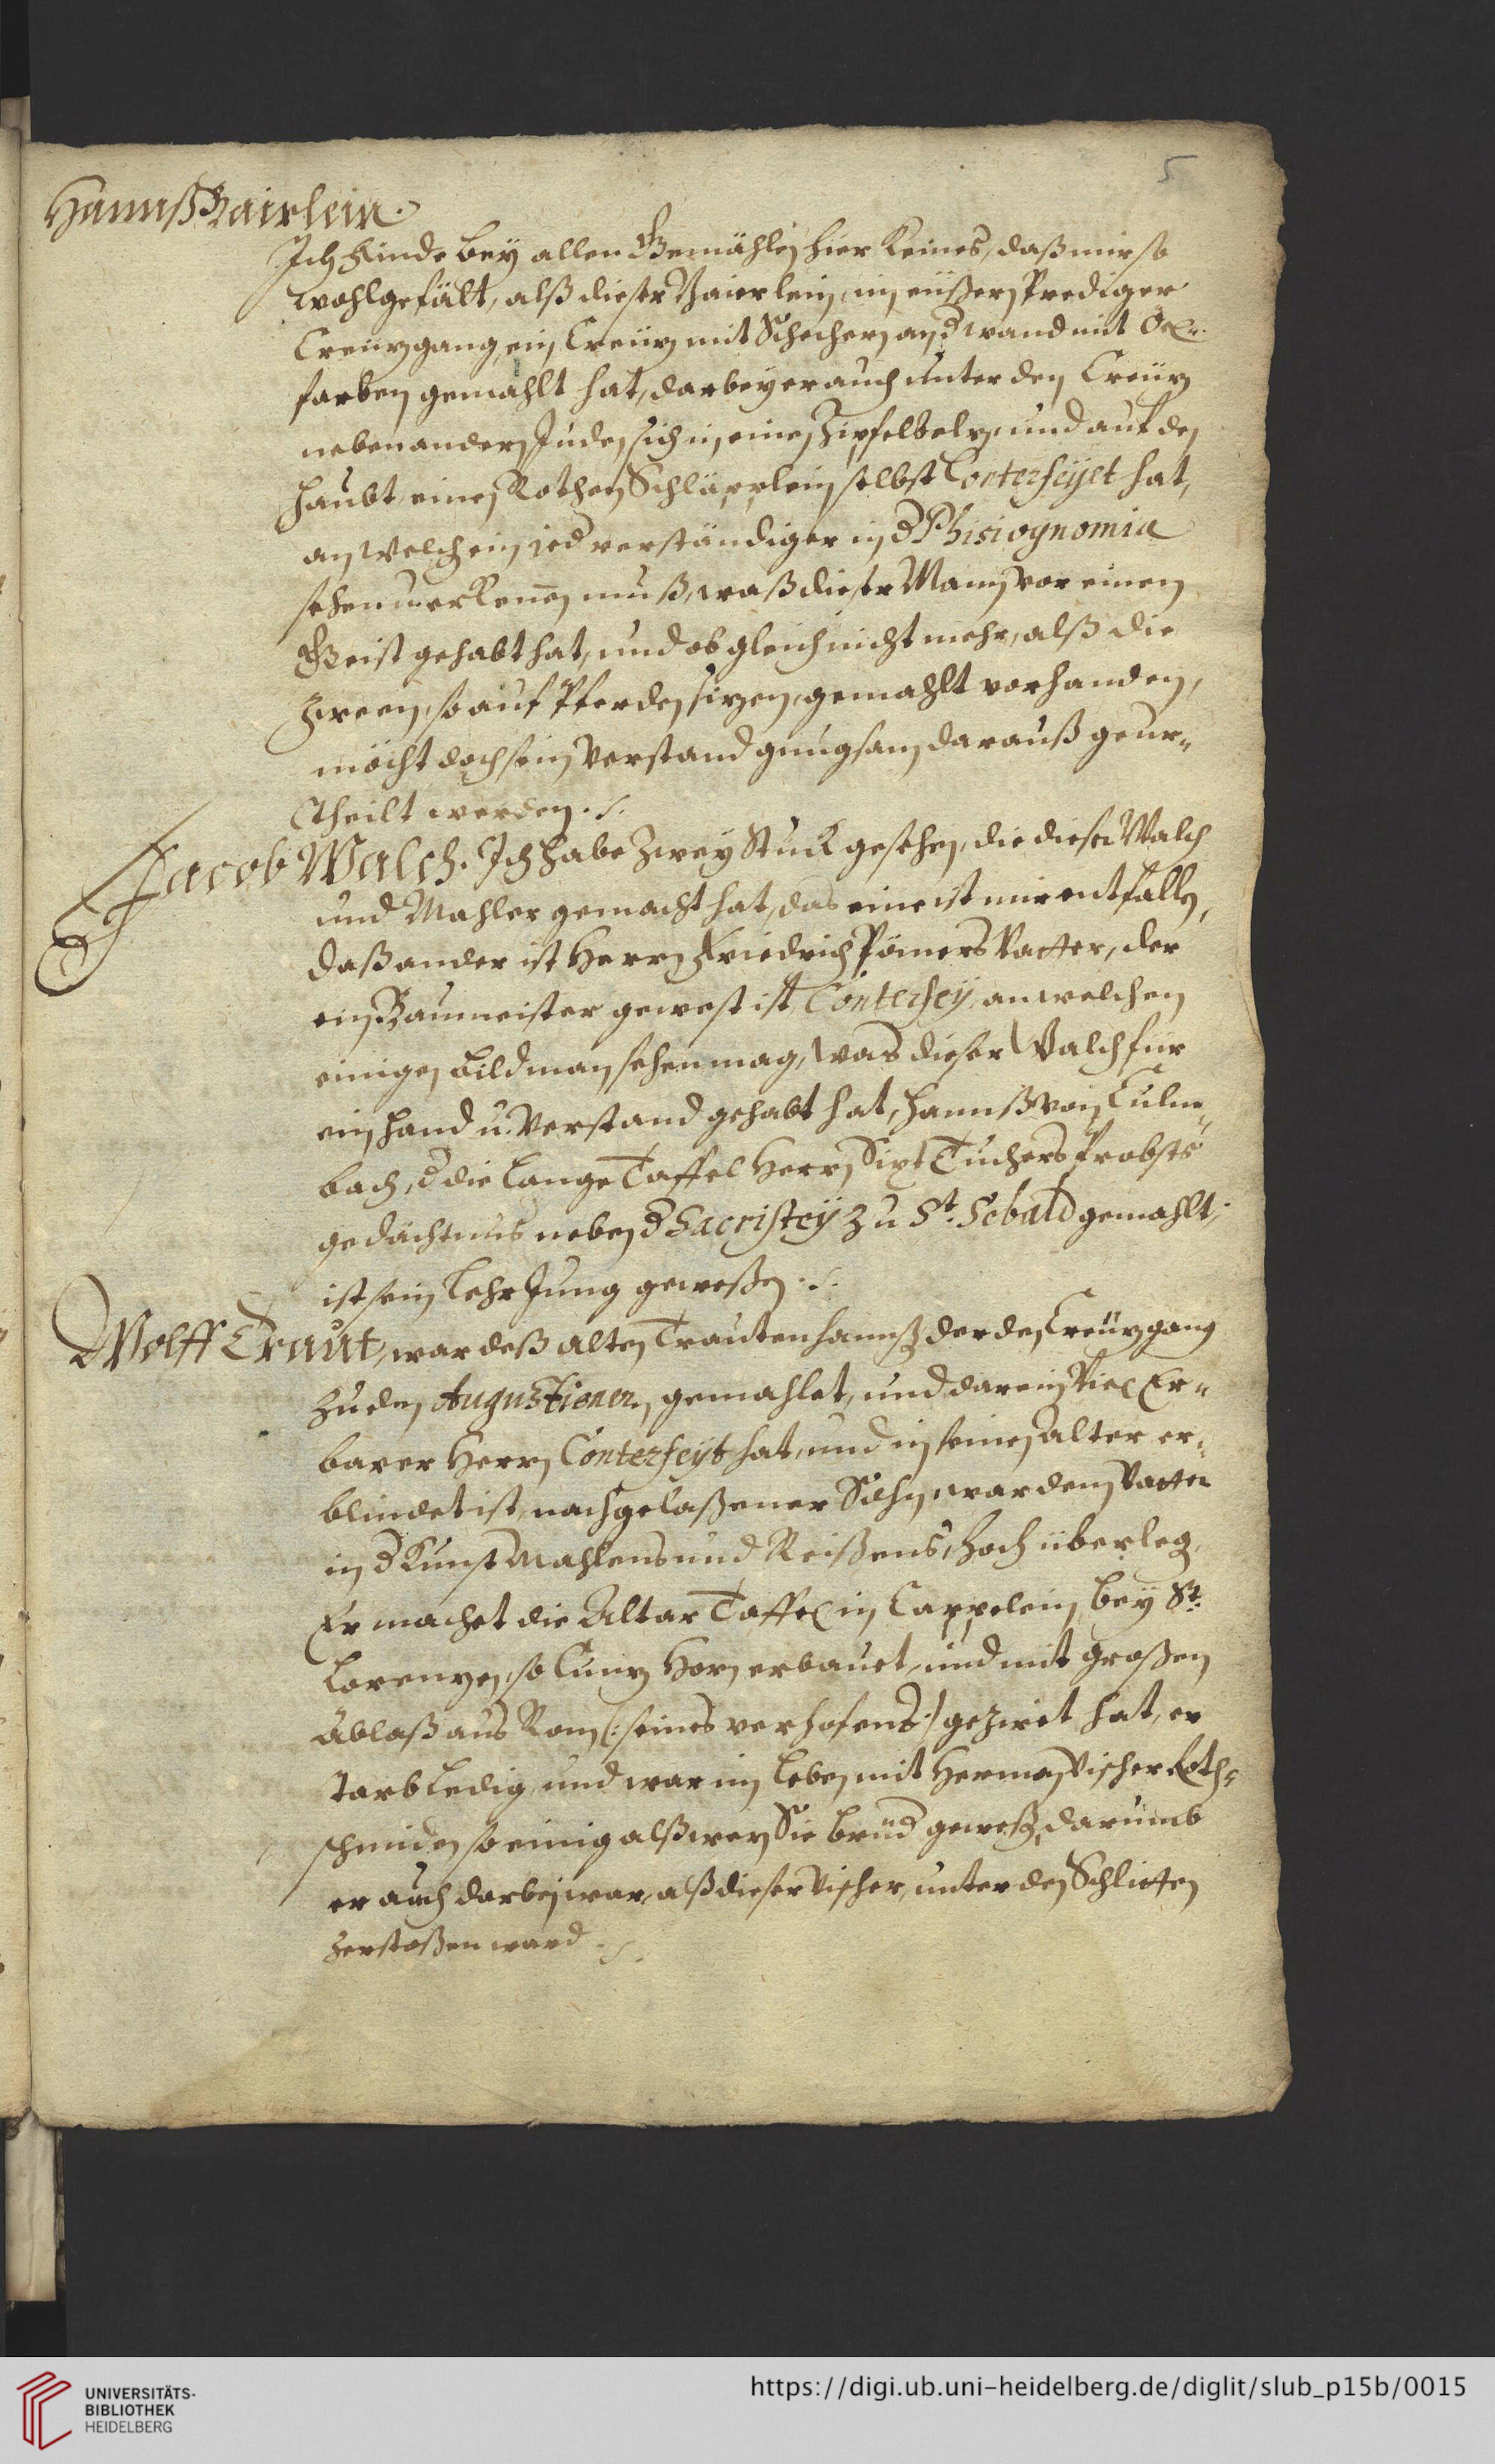 5
Hannß Bairlein.
Ich Finde bey allen Gemählen hier keines, daß mir so
wohlgefält, alß dieser Baierlein, im eüßern Prediger
Creützgang, ein Creütz mit Schechern an d wand mit Oel-
farben gemahlt hat, darbey er auch unter den Creütz
neben andern Juden sich in einen Zipfelbelz, und auf den
Haubt einen Rothen Schläpplein selbst Conterfeyet hat,
an welchen ein ied verständiger in d Phisiognomia
sehen u. erkenen muß, waß dieser Mann vor einen
Geist gehabt hat, und ob gleich nicht mehr, alß die
zween, so auf Pferden sizen, gemahlt vorhanden,
möcht doch sein Verstand gnugsam darauß geur-
theilt werden./.
Jacob Walch. Ich habe zwey Stuck gesehen, die dieser Walch
und Mahler gemacht hat, das eine ist mir entfalln,
daß ander ist Herrn Friedrich Pömers Vatter, der
ein Baumeister gewest ist, Conterfey, an welchen
einigen bild man sehen mag, was dieser Walch für
ein Hand u. Verstand gehabt hat, Hannß von Culm-
bach, d die lange Taffel Herrn Sixt Tuchers Probsts
gedächtnus neben d Sacristey zu St. Sebald gemahlt,
ist sein Lehr Jung geweßen./.
Wolff Traut, war deß alten Trauten Hannß der den Creützgang
zu den Augustinern gemahlet, und darein viel Er-
barer Herrn Conterfeyt hat, und in seinen Alter er-
blindet ist, nachgelaßener Sohn, war dem Vatter
in d Kunst Mahlens und Reißens, hoch überleg,
Er machet die Altar Taffel in Cappelein bey St.
Lorenzen, so Cunz Horn erbauet, und mit großen
Ablaß aus Rom (: seines verhofens :) geziret hat, er
starb Ledig, und war im leben mit Herman Vischer Roth-
schmiden so einig alß wern Sie brüd geweß, darumb
er auch darbey war, alß dieser Vischer, unter den Schlitten
zerstoßen ward./.
UNIVERSITÄTS-
BIBLIOTHEK
HEIDELBERG
https://digi.ub.uni-heidelberg.de/diglit/slub_p15b/0015